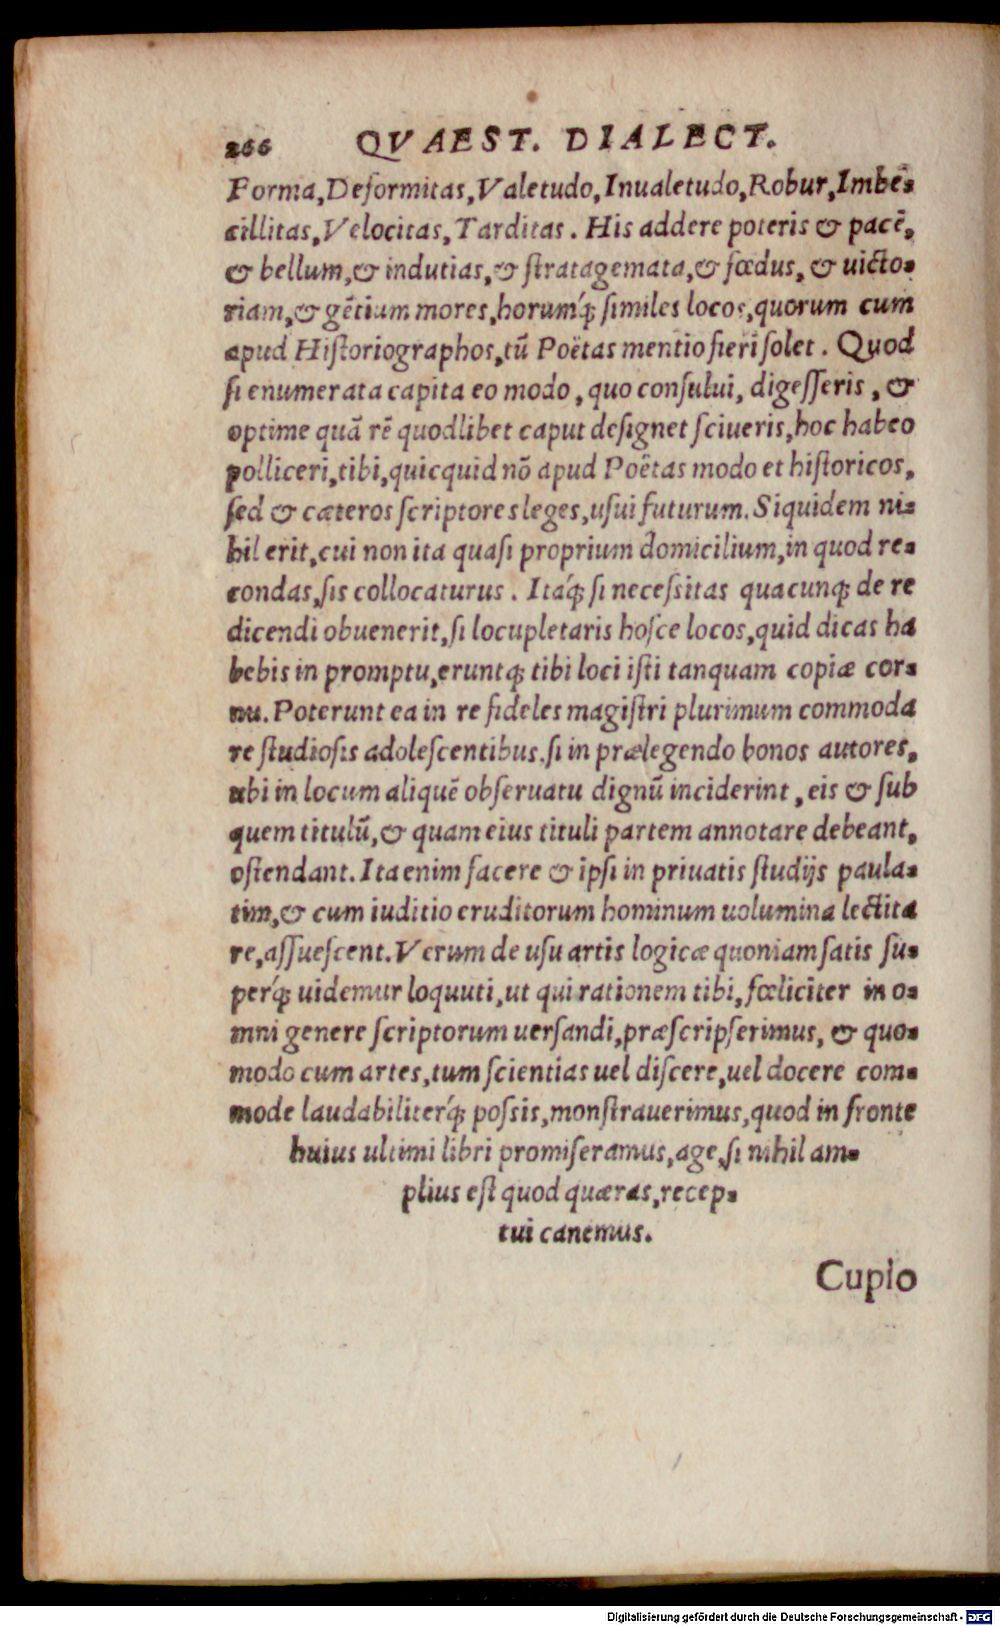 266 QVAEST. DIALECT.
Forma, Deformitas, Valetudo, Inualetudo, Robur, Imbē-
cillitas, Velocitas, Tarditas. His addere poteris & pacē,
& bellum, & indutias, & stratagemata, & fœdus, & uicto-
riam, & gētium mores, horumq́; similes locos, quorum cum
apud Historiographos, tū Poëtas mentio fieri solet. Quod
si enumerata capita eo modo, quo consului, digesseris, &
optime quā rē quodlibet caput designet sciueris, hoc habeo
polliceri, tibi, quicquid nō apud Poëtas modo et historicos,
sed & cæteros scriptores leges, usui futurum. Siquidem ni-
hil erit, cui non ita quasi proprium domicilium, in quod re-
condas, sis collocaturus. Itaq́; si necessitas quacunq; de re
dicendi obuenerit, si locupletaris hosce locos, quid dicas ha
bebis in promptu, eruntq; tibi loci isti tanquam copiæ cor-
nu. Poterunt ea in re fideles magistri plurimum commoda
re studiosis adolescentibus. si in prælegendo bonos autores,
ubi in locum aliquē obseruatu dignū inciderint, eis & sub
quem titulū, & quam eius tituli partem annotare debeant,
ostendant. Ita enim facere & ipsi in priuatis studijs paula-
tim, & cum iuditio eruditorum hominum uolumina lectita
re, assuescent. Verum de usu artis logicæ quoniam satis su-
perq́; uidemur loquuti, ut qui rationem tibi, fœliciter in o-
mni genere scriptorum uersandi, præscripserimus, & quo-
modo cum artes, tum scientias uel discere, uel docere com-
mode laudabiliterq́; possis, monstrauerimus, quod in fronte
huius ultimi libri promiseramus, age, si nihil am-
plius est quod quæras, recep-
tui canemus.
Cupio
Digitalisierung gefördert durch die Deutsche Forschungsgemeinschaft - DFG